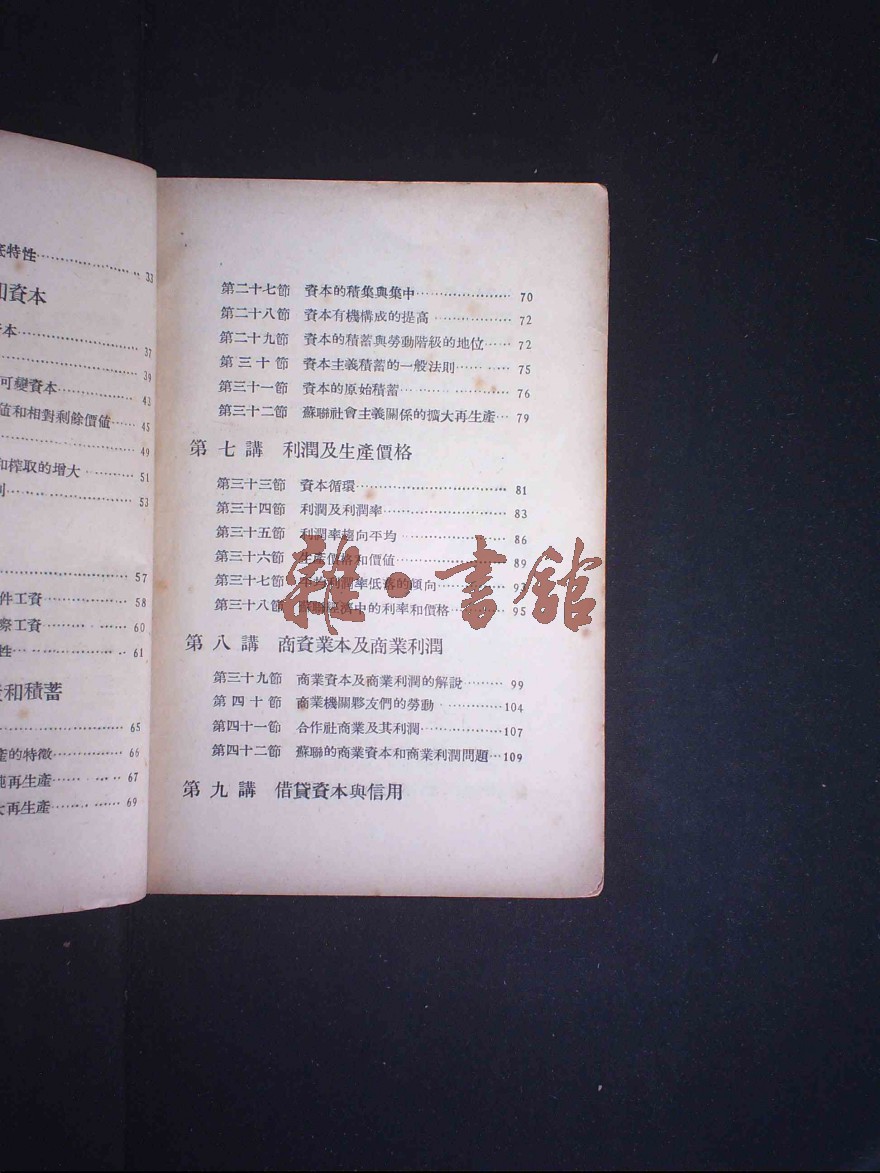 底特性 33
和資本
資本 37
39
可變資本 43
値和相對剩餘價値 45
49
和榨取的增大 51
53
57
件工資 58
際工資 60
性 61
和積蓄
65
產的特徵 66
純再生產 67
大再生產 69
第二十七節 資本的積集與集中 70
第二十八節 資本有機構成的提高 72
第二十九節 資本的積蓄與勞動階級的地位 72
第三十節 資本主義積蓄的一般法則 75
第三十一節 資本的原始積蓄 76
第三十二節 蘇聯社會主義關係的擴大再生產 79
第七講 利潤及生產價格
第三十三節 資本循環 81
第三十四節 利潤及利潤率 83
第三十五節 利潤率趨向平均 86
第三十六節 生產價格和價値 89
第三十七節 平均利潤率低落的傾向 93
第三十八節 蘇聯經濟中的利率和價格 95
第八講 商資業本及商業利潤
第三十九節 商業資本及商業利潤的解說 99
第四十節 商業機關夥友們的勞動 104
第四十一節 合作社商業及其利潤 107
第四十二節 蘇聯的商業資本和商業利潤問題 109
第九講 借貸資本與信用
雜·書館